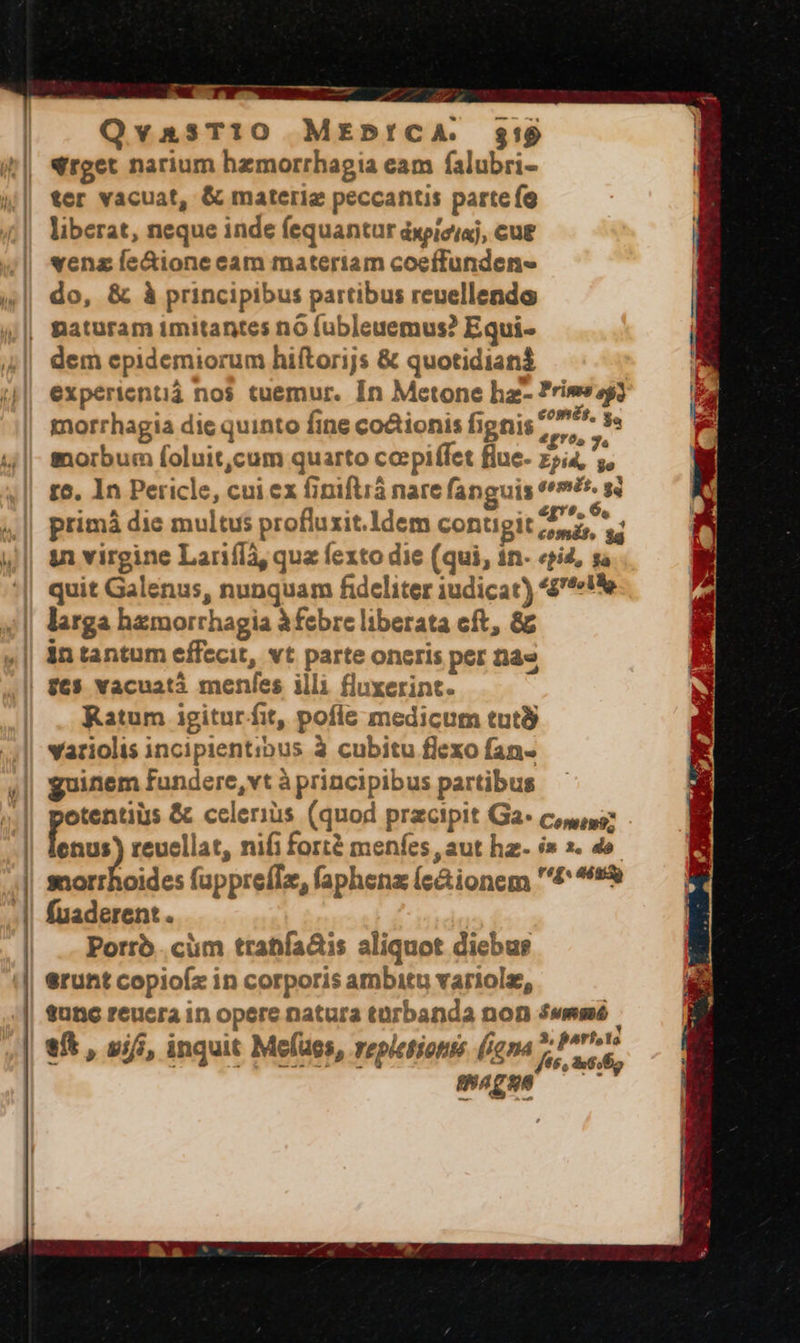 QVÆSTIO MEDICA.
erget narium hæmorrhagia eam ſalubri-
ter vacuat, & materiæ peccantis parte ſe
liberat, neque inde ſequantur ἀκρισίαι, cur
venæ ſectione eam materiam coeffunden-
do, & à principibus partibus reuellendo
naturam imitantes nō ſubleuemus? Equi-
dem epidemiorum hiſtorijs & quotidianâ
experientiâ nos tuemur. In Metone hæ-
Primo epi
morrhagia die quinto ſine coctionis ſignis
comēt. 3.
ægro. 7.
morbum ſoluit, cum quarto cœpiſſet flue-
re. In Pericle, cui ex ſiniſtrâ nare ſanguis
primâ die multus profluxit. Idem contigit
ægro. 6.
in virgine Lariſſâ, quæ ſexto die (qui, in-
quit Galenus, nunquam fideliter iudicat)
larga hæmorrhagia à febre liberata eſt, &
in tantum effecit, vt parte oneris per na-
res vacuatâ menſes illi fluxerint.
Ratum igitur ſit, poſſe medicum tutò
variolis incipientibus à cubitu flexo ſan-
guinem fundere, vt à principibus partibus
potentiùs & celeriùs (quod præcipit Ga-
lenus) reuellat, niſi fortè menſes, aut hæ-
in 2. de
morrhoides ſuppreſſæ, ſaphenæ ſectionem
ſuaderent.
Porrò cùm tranſactis aliquot diebus
erunt copioſæ in corporis ambitu variolæ,
tunc reuera in opere natura turbanda non
Summâ
eſt, niſi, inquit Meſues, repletionis ſigna
magna